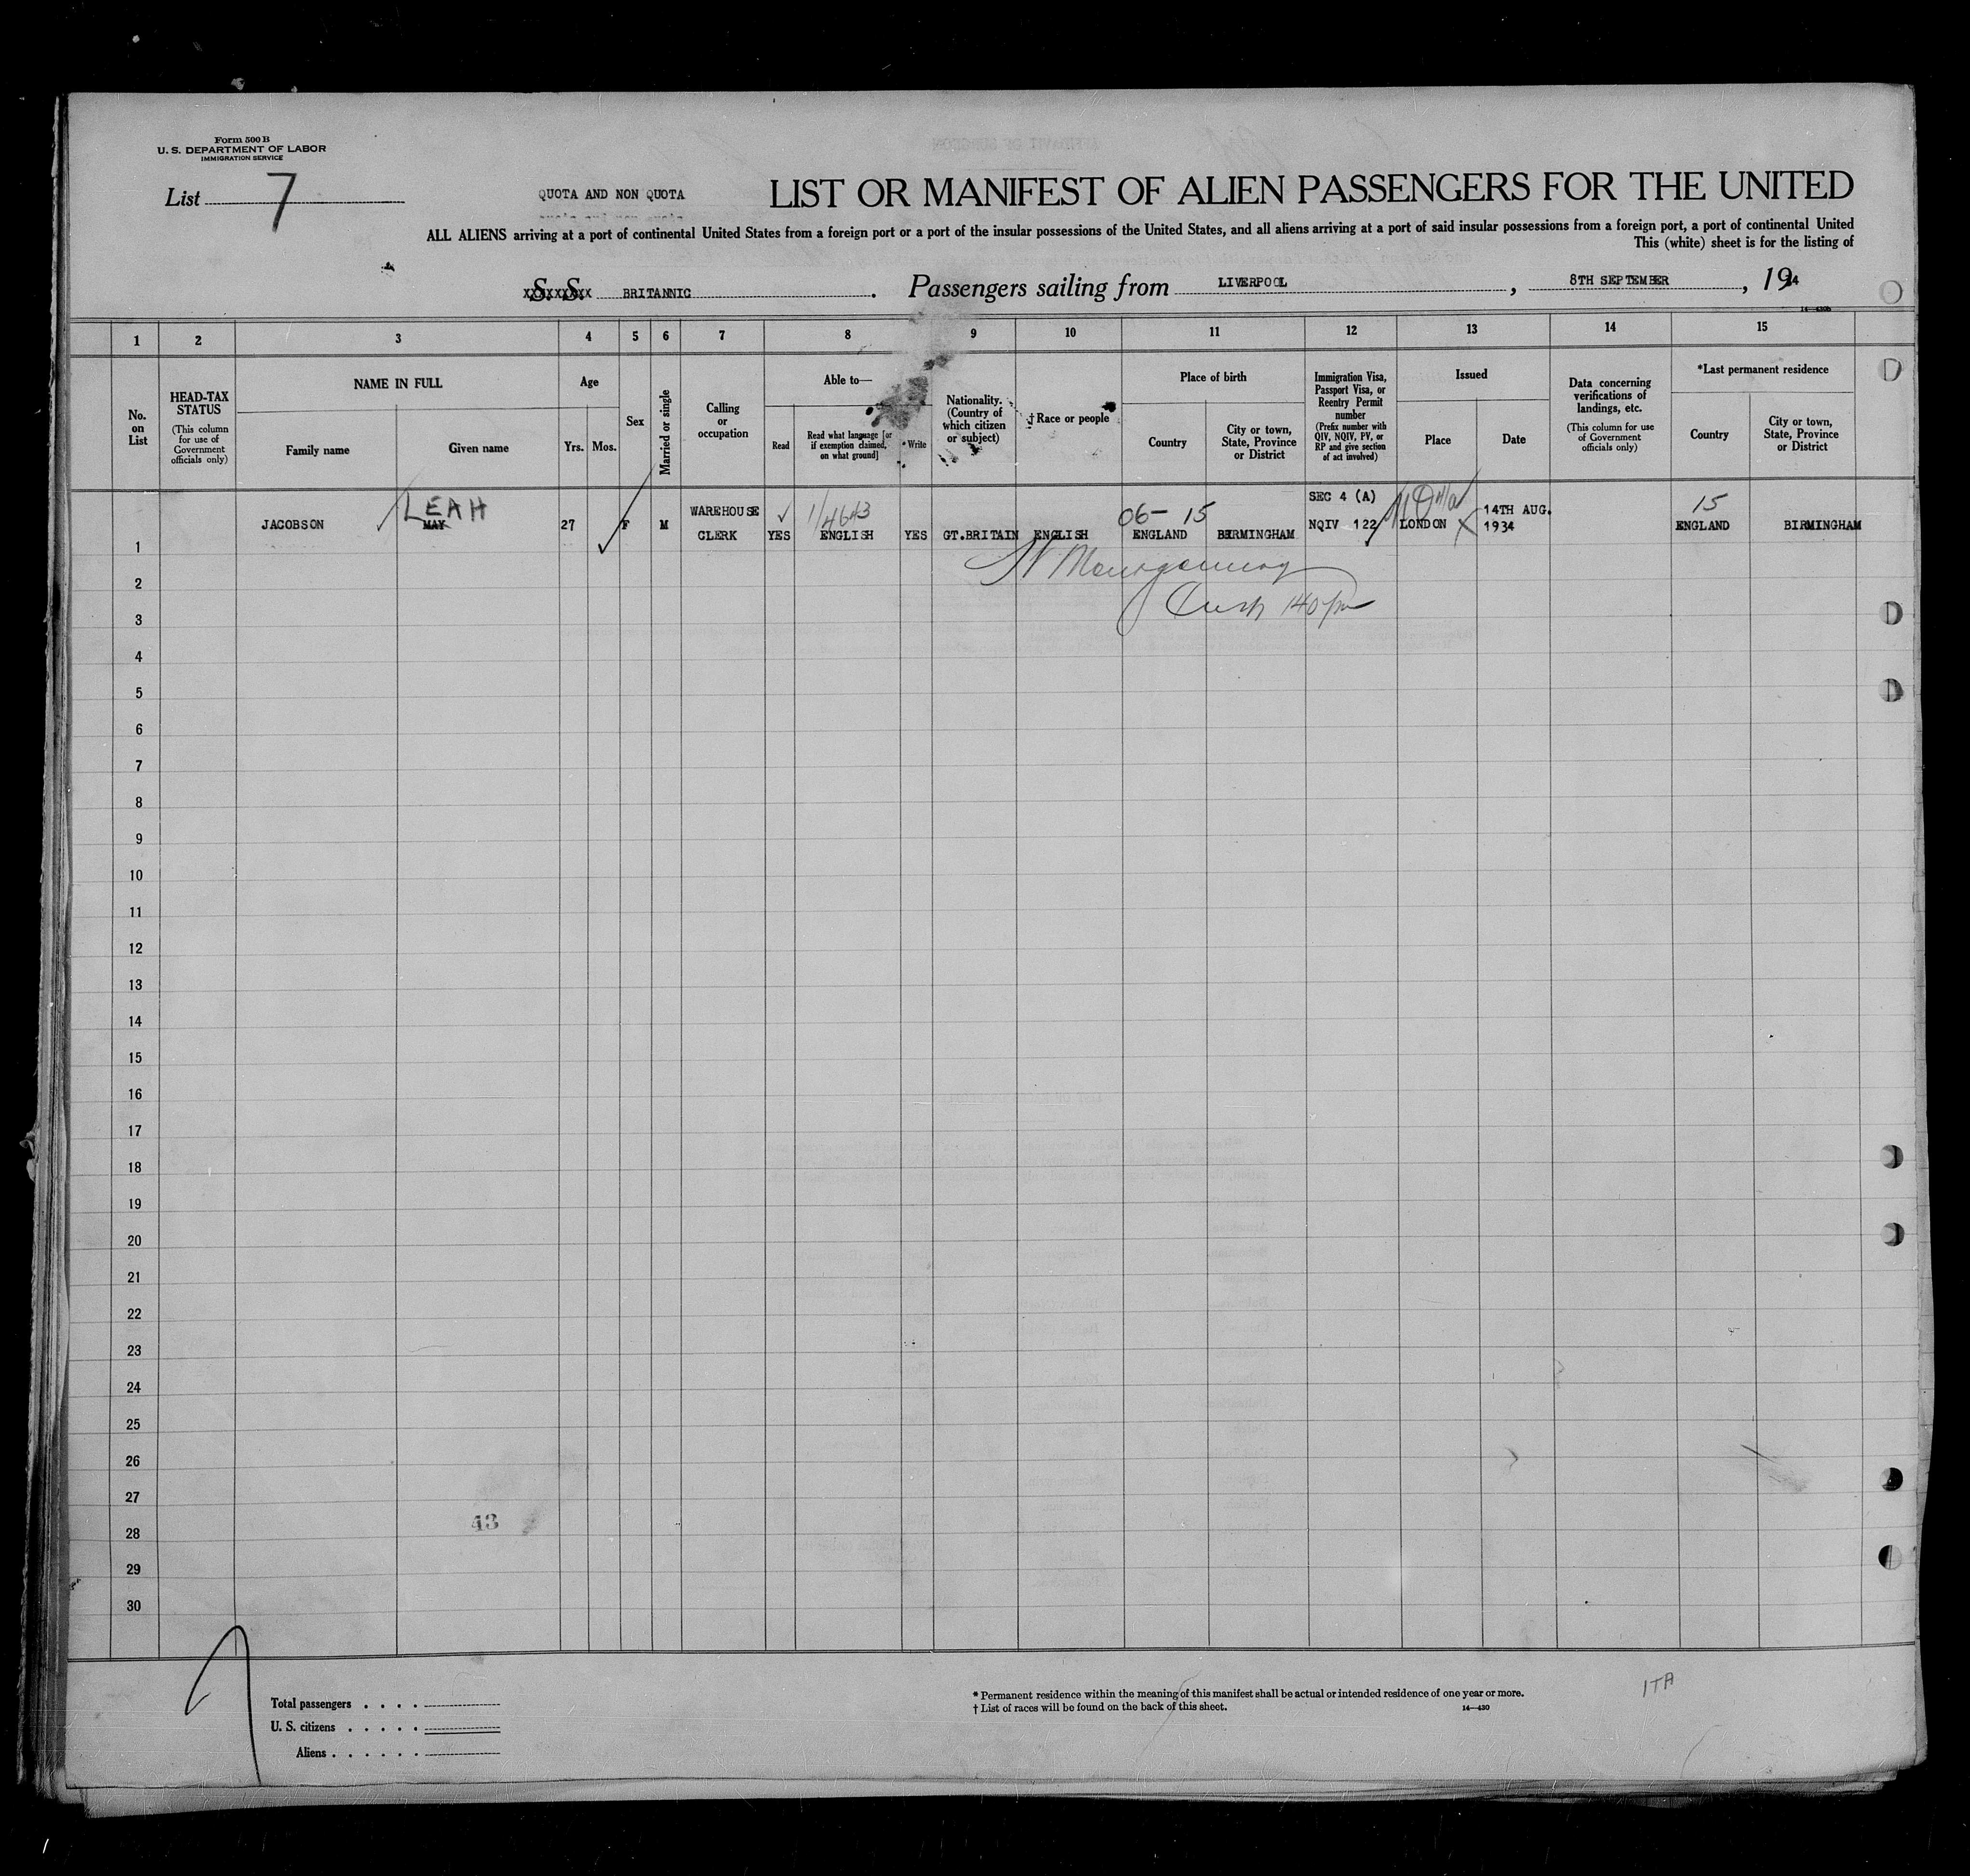 Form 500 B
U. S. DEPARTMENT OF LABOR
IMMIGRATION SERVICE
List 7
QUOTA AND NON QUOTA
LIST OR MANIFEST OF ALIEN PASSENGERS FOR THE UNITED
ALL ALIENS arriving at a port of continental United States from a foreign port or a port of the insular possessions of the United States, and all aliens arriving at a port of said insular possessions from a foreign port, a port of continental United
This (white) sheet is for the listing of
S. S. BRITANNIC. Passengers sailing from LIVERPOOL, 8TH SEPTEMBER, 1934
14—430b
1 2 3 4 5 6 7 8 9 10 11 12 13 14 15
No. on List
HEAD-TAX STATUS
(This column for use of Government officials only)
NAME IN FULL
Family name
Given name
Age
Yrs.
Mos.
Sex
Married or single
Calling or occupation
Able to—
Read
Read what language [or if exemption claimed, on what ground]
Write
Nationality. (Country of which citizen or subject)
† Race or people
Place of birth
Country
City or town, State, Province or District
Immigration Visa, Passport Visa, or Reentry Permit number
(Prefix number with QIV, NQIV, PV, or RP and give section of act involved)
Issued
Place
Date
Data concerning verifications of landings, etc.
(This column for use of Government officials only)
*Last permanent residence
Country
City or town, State, Province or District
LEAH
SEC 4 (A)
WAREHOUSE
06- 15
14TH AUG.
15
1 JACOBSON MAY 27 F M CLERK YES ENGLISH YES GT.BRITAIN ENGLISH ENGLAND BIRMINGHAM NQIV 122 LONDON 1934 ENGLAND BIRMINGHAM
Montgomery
2
3
4
5
6
7
8
9
10
11
12
13
14
15
16
17
18
19
20
21
22
23
24
25
26
27
43
28
29
30
Total passengers . . . .
U. S. citizens . . . . .
Aliens . . . . . .
* Permanent residence within the meaning of this manifest shall be actual or intended residence of one year or more.
† List of races will be found on the back of this sheet.
14—430